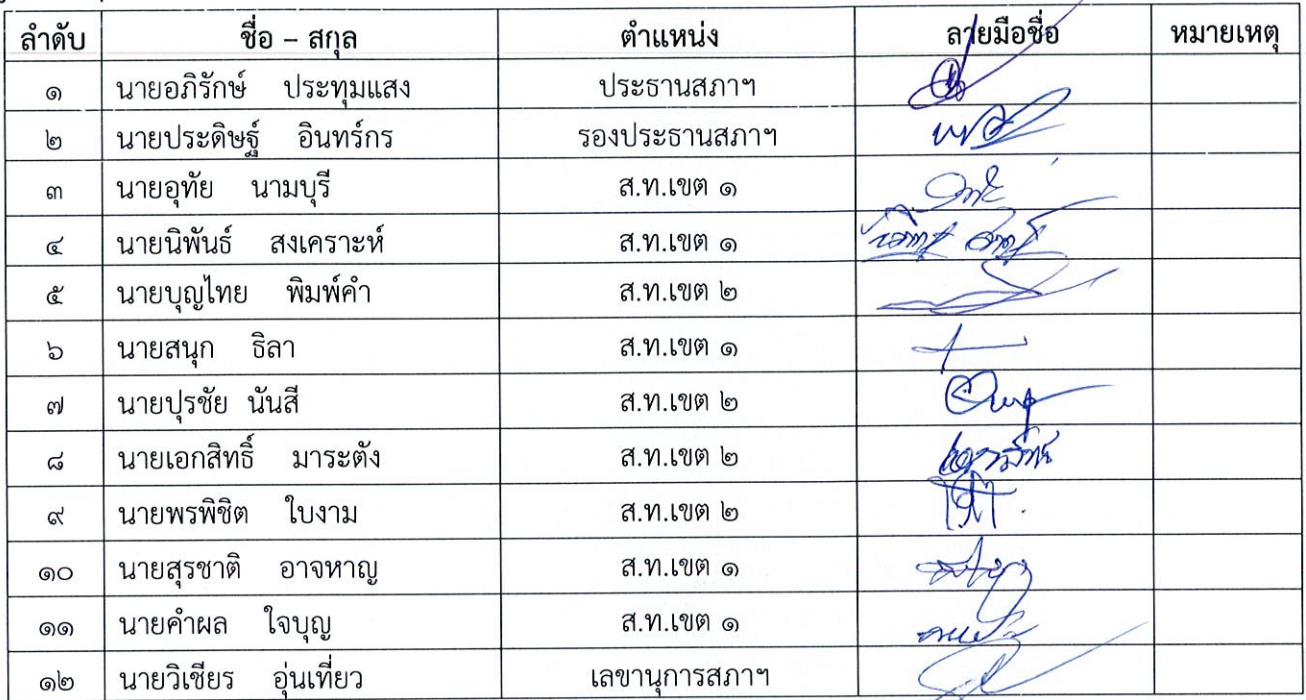 ลำดับ ชื่อ – สกุล ตำแหน่ง ลายมือชื่อ หมายเหตุ
๑ นายอภิรักษ์ ประทุมแสง ประธานสภาฯ
๒ นายประดิษฐ์ อินทร์กร รองประธานสภาฯ
๓ นายอุทัย นามบุรี ส.ท.เขต ๑
๔ นายนิพันธ์ สงเคราะห์ ส.ท.เขต ๑
๕ นายบุญไทย พิมพ์คำ ส.ท.เขต ๒
๖ นายสนุก ธิลา ส.ท.เขต ๑
๗ นายปุรชัย นันสี ส.ท.เขต ๒
๘ นายเอกสิทธิ์ มาระตัง ส.ท.เขต ๒
๙ นายพรพิชิต ใบงาม ส.ท.เขต ๒
๑๐ นายสุรชาติ อาจหาญ ส.ท.เขต ๑
๑๑ นายคำผล ใจบุญ ส.ท.เขต ๑
๑๒ นายวิเชียร อุ่นเที่ยว เลขานุการสภาฯ